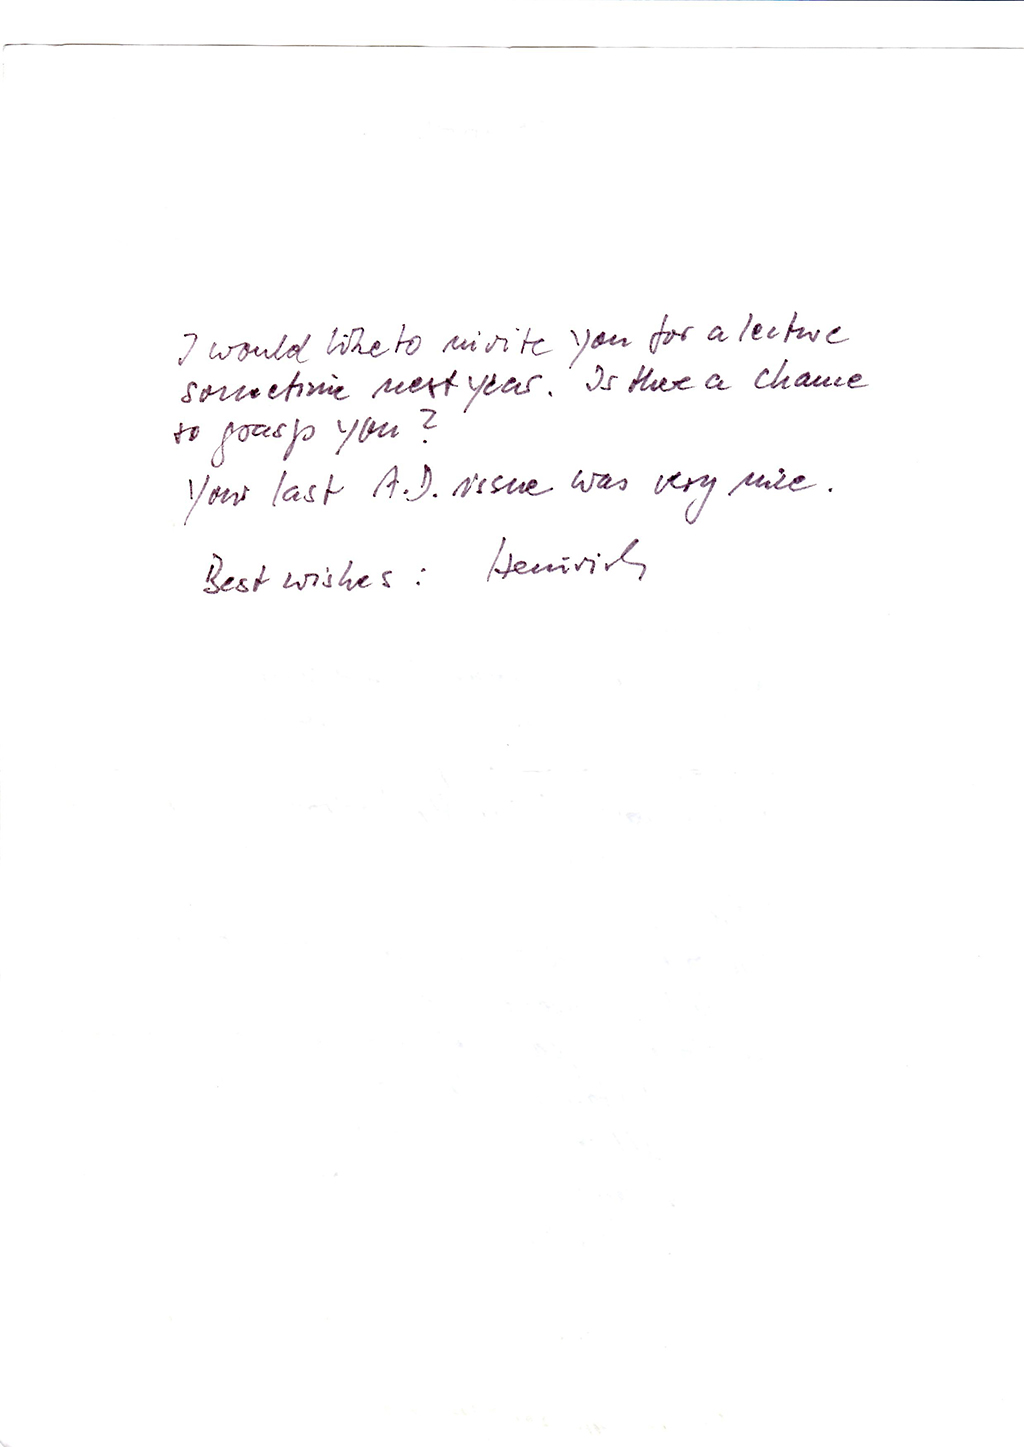 I would like to invite you for a lecture
sometime next year. Is there a chance
to grasp you?
Your last A.D. issue was very nice.
Best wishes: Heinrich